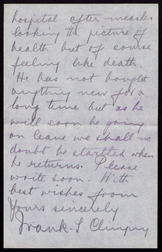 hospital after measles
looking the picture of
health but of course
feeling like death.
He has not bought
anything new for a
long time but as he
will soon be going
on leave we shall no
doubt be startled when
he returns. Please
write soon. With
best wishes from
Yours sincerely
Frank. S